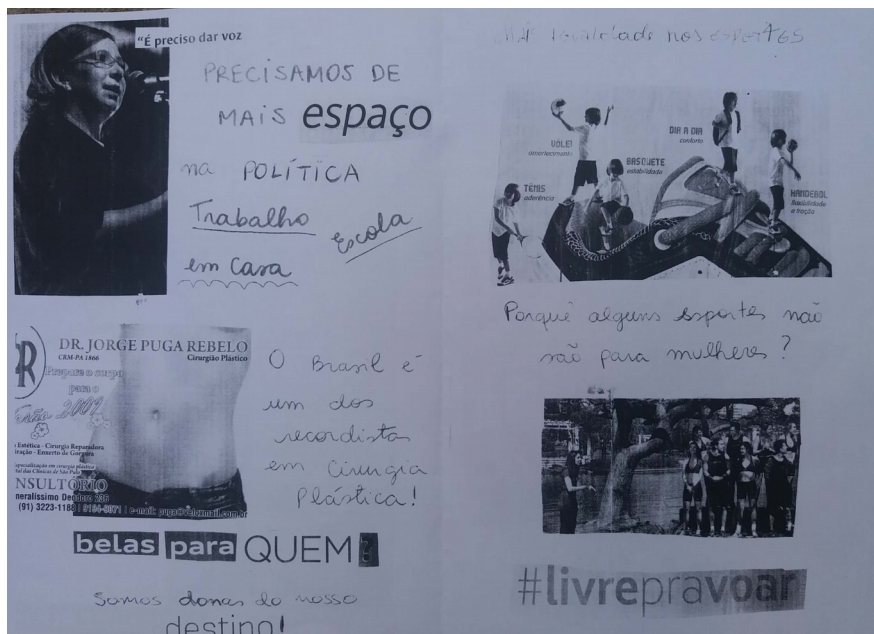 "É preciso dar voz
PRECISAMOS DE
MAIS espaço
na POLÍTICA
Trabalho
Escola
em Casa
DR. JORGE PUGA REBELO
CRM-PA 1866
Cirurgião Plástico
Prepare o corpo
para o
2009
Estética - Cirurgia Reparadora
ração - Enxerto de Gordura
especialização em cirurgia plástica
tal das Clínicas de São Paulo
NSULTÓRIO
neralíssimo Deodoro 236
(91) 3223-1188 | 9104-8071 | e-mail: puga@veloxmail.com.br
O Brasil é
um dos
recordista
em Cirurgia
Plástica!
belas para QUEM?
Somos donas do nosso
destino!
igualdade nos esportes
VÔLEI
amortecimento
DIA A DIA
conforto
BASQUETE
estabilidade
TÊNIS
aderência
HANDEBOL
flexibilidade
e tração
Porquê alguns esportes não
são para mulheres?
#livrepravoar